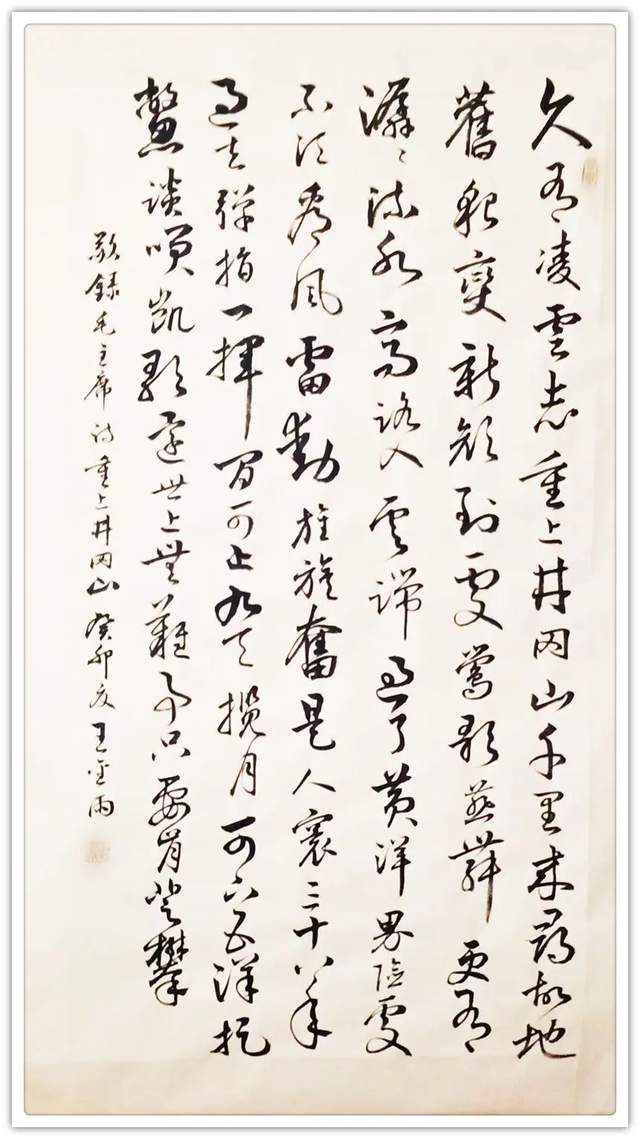 久有凌雲志重上井冈山千里来尋故地
舊貌變新顔到處鶯歌燕舞更有
潺々流水高路入雲端過了黄洋界險處
不須看風雷動旌旗奮是人寰三十八年
過去彈指一揮間可上九天攬月可下五洋捉
鱉談笑凱歌還世上無難事只要肯登攀
敬録毛主席詩重上井冈山癸卯夏王金雨